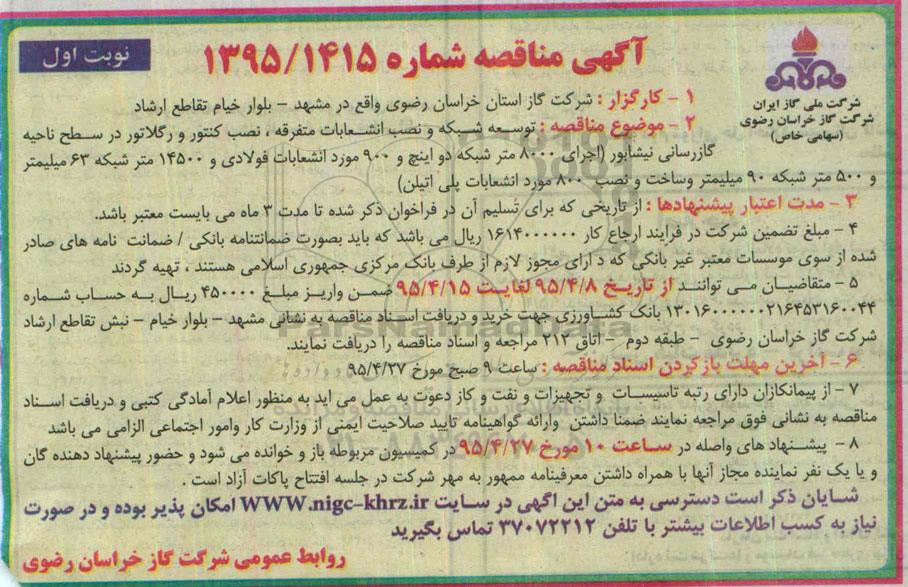 آگهی مناقصه شماره ۱۳۹۵/۱۴۱۵
نوبت اول
شرکت ملی گاز ایران
شرکت گاز خراسان رضوی
(سهامی خاص)
۱ - کارگزار : شرکت گاز استان خراسان رضوی واقع در مشهد - بلوار خیام تقاطع ارشاد
۲ - موضوع مناقصه : توسعه شبکه و نصب انشعابات متفرقه ، نصب کنتور و رگلاتور در سطح ناحیه
گازرسانی نیشابور (اجرای ۸۰۰۰ متر شبکه دو اینچ و ۹۰۰ مورد انشعابات فولادی و ۱۴۵۰۰ متر شبکه ۶۳ میلیمتر
و ۵۰۰ متر شبکه ۹۰ میلیمتر وساخت و نصب ۸۰۰ مورد انشعابات پلی اتیلن)
۳ - مدت اعتبار پیشنهادها : از تاریخی که برای تسلیم آن در فراخوان ذکر شده تا مدت ۳ ماه می بایست معتبر باشد.
۴ - مبلغ تضمین شرکت در فرایند ارجاع کار ۱۶۱۴۰۰۰۰۰۰ ریال می باشد که باید بصورت ضمانتنامه بانکی / ضمانت نامه های صادر
شده از سوی موسسات معتبر غیر بانکی که د ارای مجوز لازم از طرف بانک مرکزی جمهوری اسلامی هستند ، تهیه گردند
۵ - متقاضیان می توانند از تاریخ ۹۵/۴/۸ لغایت ۹۵/۴/۱۵ ضمن واریز مبلغ ۴۵۰۰۰۰ ریال به حساب شماره
۱۳۰۱۶۰۰۰۰۰۰۲۱۶۴۵۳۱۶۰۰۴۴ بانک کشاورزی جهت خرید و دریافت اسناد مناقصه به نشانی مشهد - بلوار خیام - نبش تقاطع ارشاد
شرکت گاز خراسان رضوی - طبقه دوم - اتاق ۲۱۲ مراجعه و اسناد مناقصه را دریافت نمایند.
۶ - آخرین مهلت بازکردن اسناد مناقصه : ساعت ۹ صبح مورخ ۹۵/۴/۲۷
۷ - از پیمانکاران دارای رتبه تاسیسات و تجهیزات و نفت و گاز دعوت به عمل می اید به منظور اعلام آمادگی کتبی و دریافت اسناد
مناقصه به نشانی فوق مراجعه نمایند ضمنا داشتن وارائه گواهینامه تایید صلاحیت ایمنی از وزارت کار وامور اجتماعی الزامی می باشد
۸ - پیشنهاد های واصله در ساعت ۱۰ مورخ ۹۵/۴/۲۷ در کمیسیون مربوطه باز و خوانده می شود و حضور پیشنهاد دهنده گان
و یا یک نفر نماینده مجاز آنها با همراه داشتن معرفینامه ممهور به مهر شرکت در جلسه افتتاح پاکات آزاد است .
شایان ذکر است دسترسی به متن این اگهی در سایت WWW.nigc-khrz.ir امکان پذیر بوده و در صورت
نیاز به کسب اطلاعات بیشتر با تلفن ۳۷۰۷۲۲۱۲ تماس بگیرید
روابط عمومی شرکت گاز خراسان رضوی
ParsNamadData